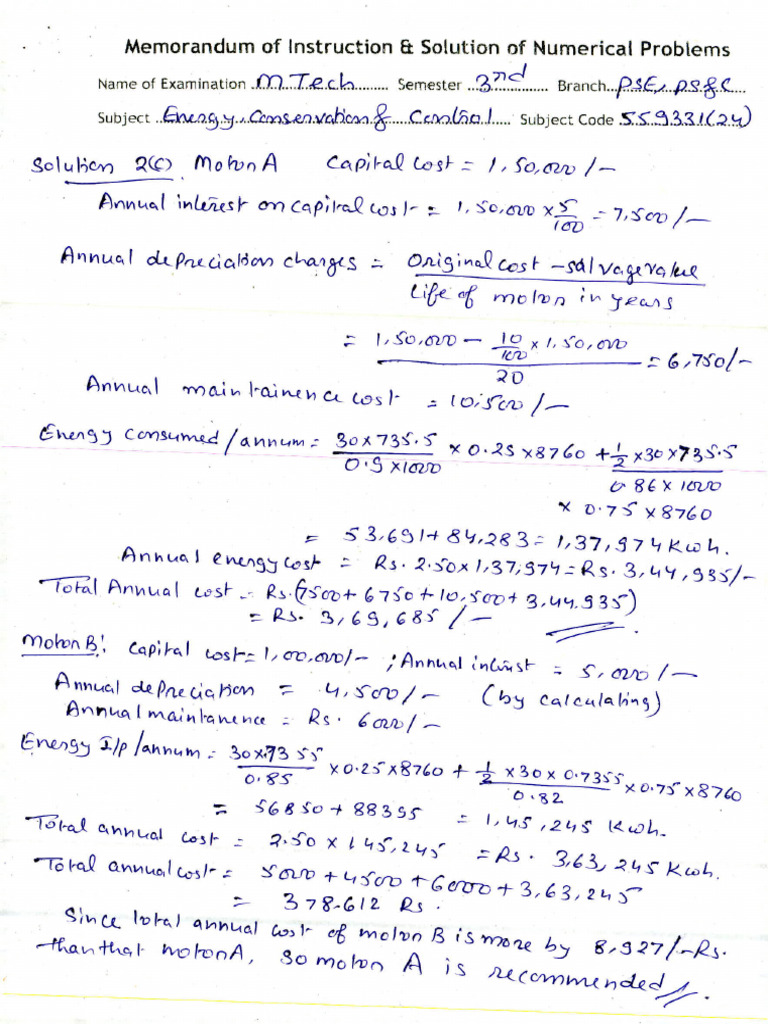 Memorandum of Instruction & Solution of Numerical Problems
Name of Examination ..M.Tech........... Semester ..3rd........... Branch...PSE, PS&C....
Subject ..Energy Conservation & Control..... Subject Code .559331(24)
Solution 2(c). Motor A Capital cost = 1,50,000/-
Annual interest on capital cost = 1,50,000 × 5/100 = 7,500/-
Annual depreciation charges = Original cost - salvage value
life of motor in years
= 1,50,000 - 10/100 × 1,50,000 = 6,750/-
20
Annual maintainence cost = 10,500/-
Energy consumed/annum = 30×735.5 × 0.25 × 8760 + 1/2 ×30×735.5
0.9×1000 0.86×1000
× 0.75 × 8760
= 53,691+84,283 = 1,37,974 Kwh.
Annual energy cost = Rs. 2.50×1,37,974 = Rs. 3,44,935/-
Total Annual cost = Rs. (7500+6750+10,500+3,44,935)
= Rs. 3,69,685/-
Motor B: Capital cost = 1,00,000/- ; Annual interest = 5,000/-
Annual depreciation = 4,500/- (by calculating)
Annual maintanence = Rs. 6000/-
Energy I/p/annum = 30×.7355 ×0.25×8760 + 1/2 ×30×0.7355 ×0.75×8760
0.85 0.82
= 56850+88395 = 1,45,245 Kwh.
Total annual cost = 2.50×145,245 = Rs. 3,63,245 Kwh.
Total annual cost = 5000+4500+6000+3,63,245
= 378.612 Rs.
Since total annual cost of motor B is more by 8,927/-Rs.
than that motor A, so motor A is recommended